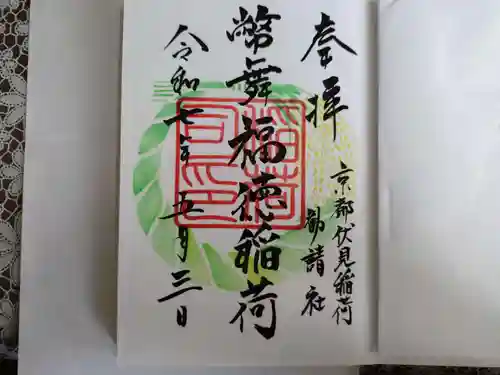 奉拝
京都伏見稲荷
勧請社
幣舞福徳稲荷
令和七年 五月三日